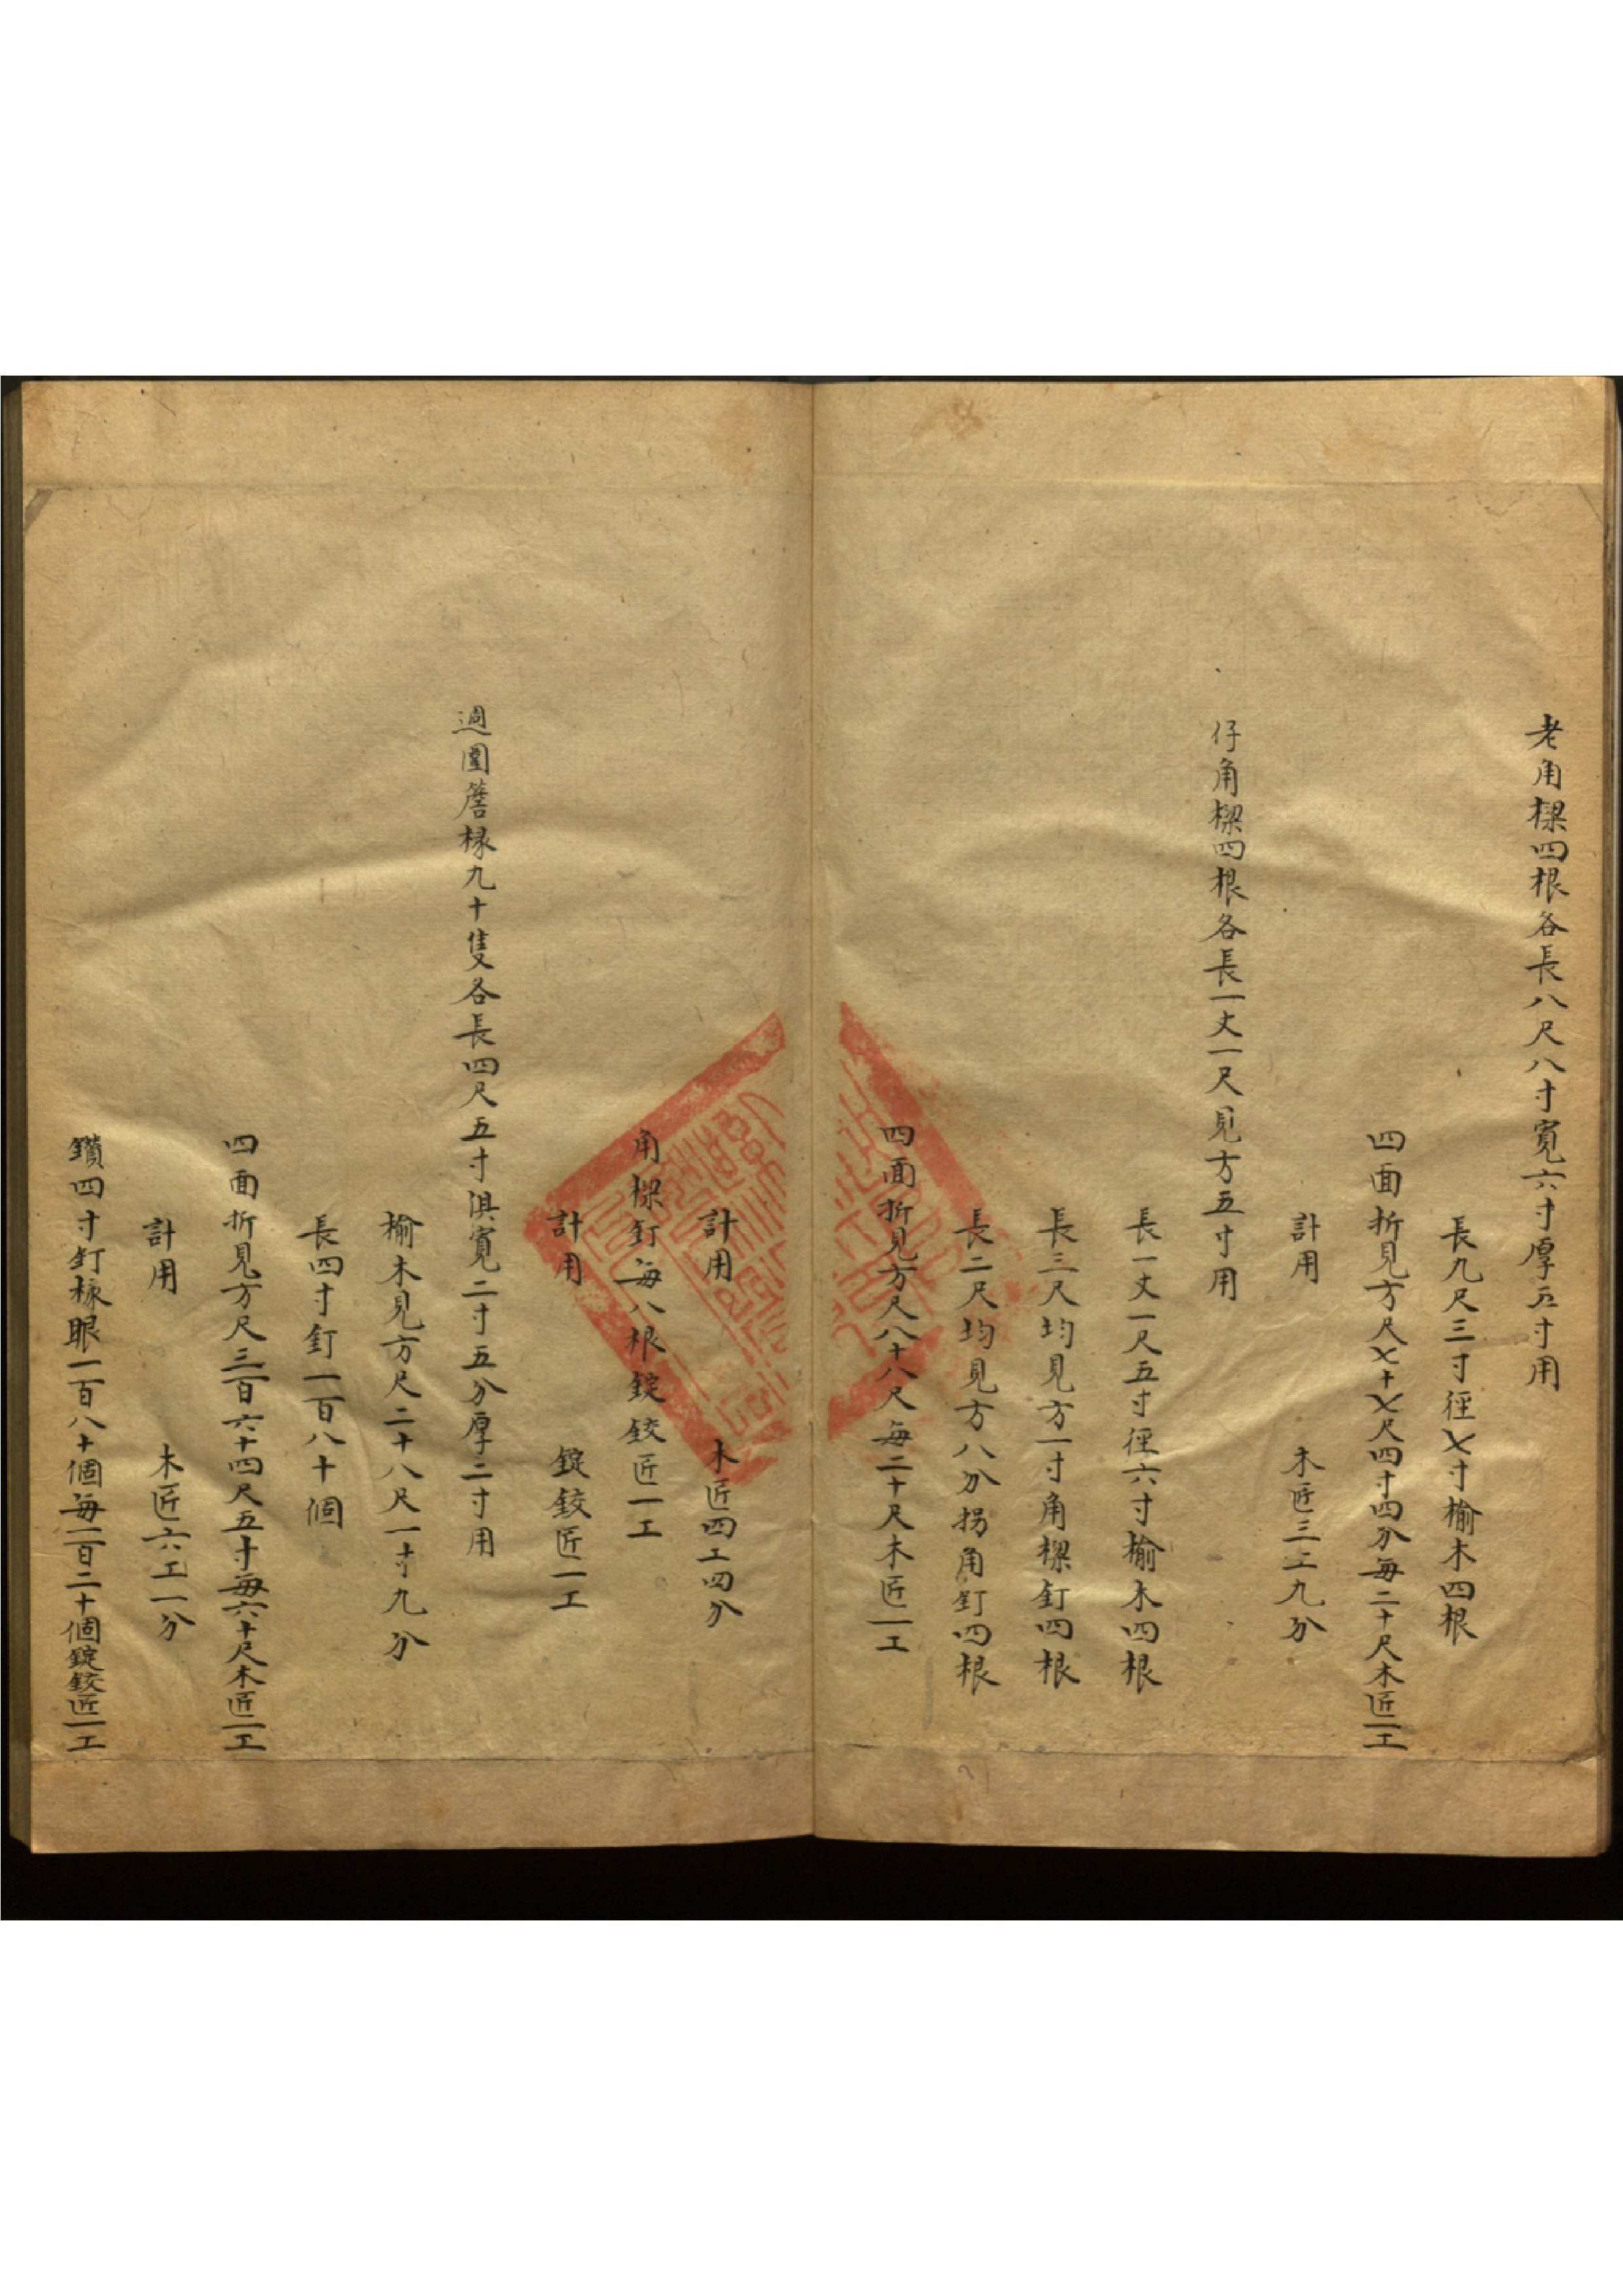 老角樑四根各長八尺八寸寬六寸厚五寸用
長九尺三寸徑七寸榆木四根
四面折見方尺七十七尺四寸四分每二十尺木匠一工
計用 木匠三工九分
仔角樑四根各長一丈一尺見方五寸用
長一丈一尺五寸徑六寸榆木四根
長三尺均見方一寸角樑釘四根
長二尺均見方八分拐角釘四根
四面折見方尺八十八尺每二十尺木匠一工
計用 木匠四工四分
角樑釘每八根錠鉸匠一工
計用 錠鉸匠一工
週圍簷椽九十隻各長四尺五寸俱寬二寸五分厚二寸用
榆木見方尺二十八尺一寸九分
長四寸釘一百八十個
四面折見方尺三百六十四尺五寸每六十尺木匠一工
計用 木匠六工一分
鑽四寸釘椽眼一百八十個每一百二十個錠鉸匠一工